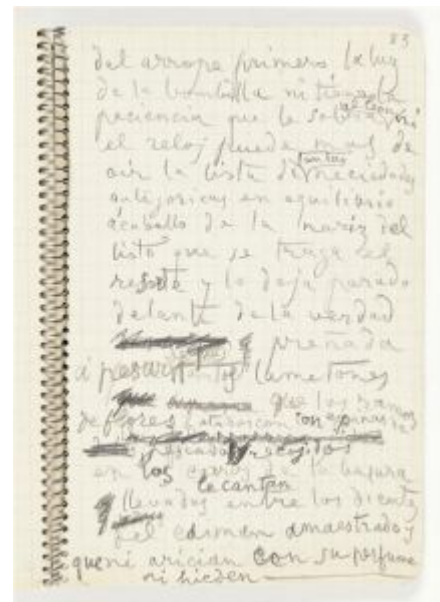 83
del arrope primero la luz
de la bombilla ni tiene la
paciencia que le sobra al león ni
el reloj puede mas de
oir la lista de tantas necedades
en equilibrio
a caballo de la nariz del
listo que se traga el
resorte y lo deja parado
delante de la verdad
preñada
á pesar tantos lametones
que los ramos
de flores con espinas de
pescado recojidos
en los de la basura
le cantan
llevados entre los dientes
del amaestrado y
que ni arician con su perfume
ni hieden